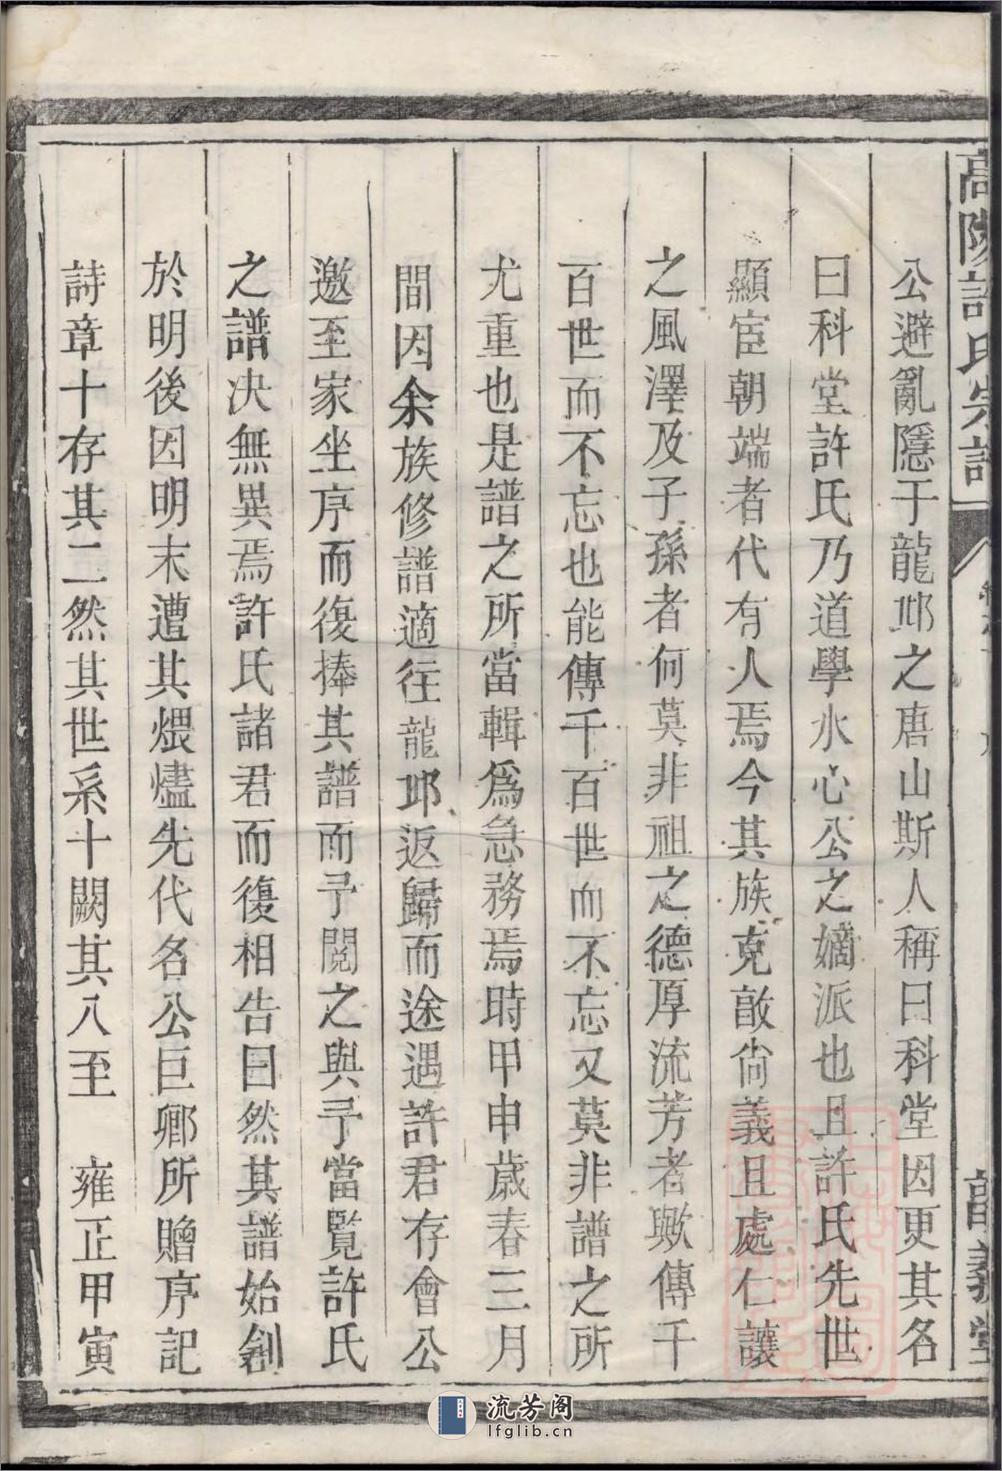 高陽許氏宗譜
公避亂隱于龍邙之唐山斯人稱曰科堂因更其名
曰科堂許氏乃道學水心公之嫡派也且許氏先世
顯宦朝端者代有人焉今其族克敵尙義且處仁讓
之風澤及子孫者何莫非祖之德厚流芳者歟傳千
百世而不忘也能傳千百世而不忘又莫非譜之所
尤重也是譜之所當輯爲急務焉時甲申歲春三月
間因余族修譜適往龍邙返歸而途遇許君存會公
邀至家坐序而復捧其譜而予閱之與予當覧許氏
之譜决無異焉許氏諸君而復相告曰然其譜始創
於明後因明末遭其煨燼先代名公巨卿所贈序記
詩章十存其二然其世系十闕其八至　雍正甲寅
義堂
流芳阁
lfglib.cn